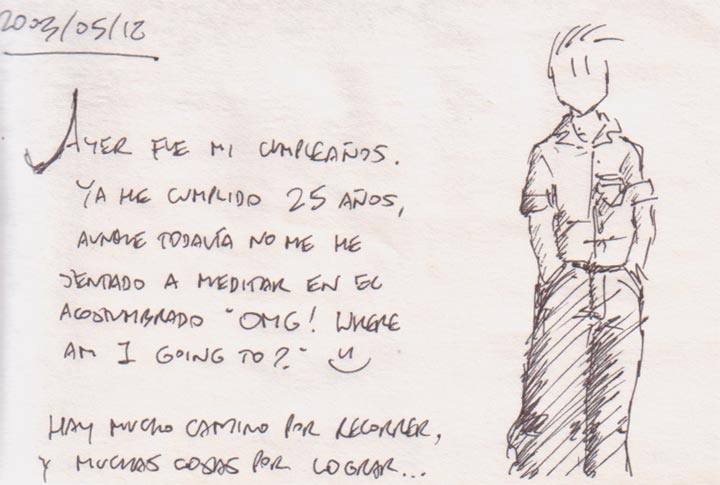 2003/05/12
AYER FUE MI CUMPLEAÑOS.
YA HE CUMPLIDO 25 AÑOS,
AUNQUE TODAVÍA NO ME HE
SENTADO A MEDITAR EN EL
ACOSTUMBRADO "OMG! WHERE
AM I GOING TO?." :)
HAY MUCHO CAMINO POR RECORRER,
Y MUCHAS COSAS POR LOGRAR...